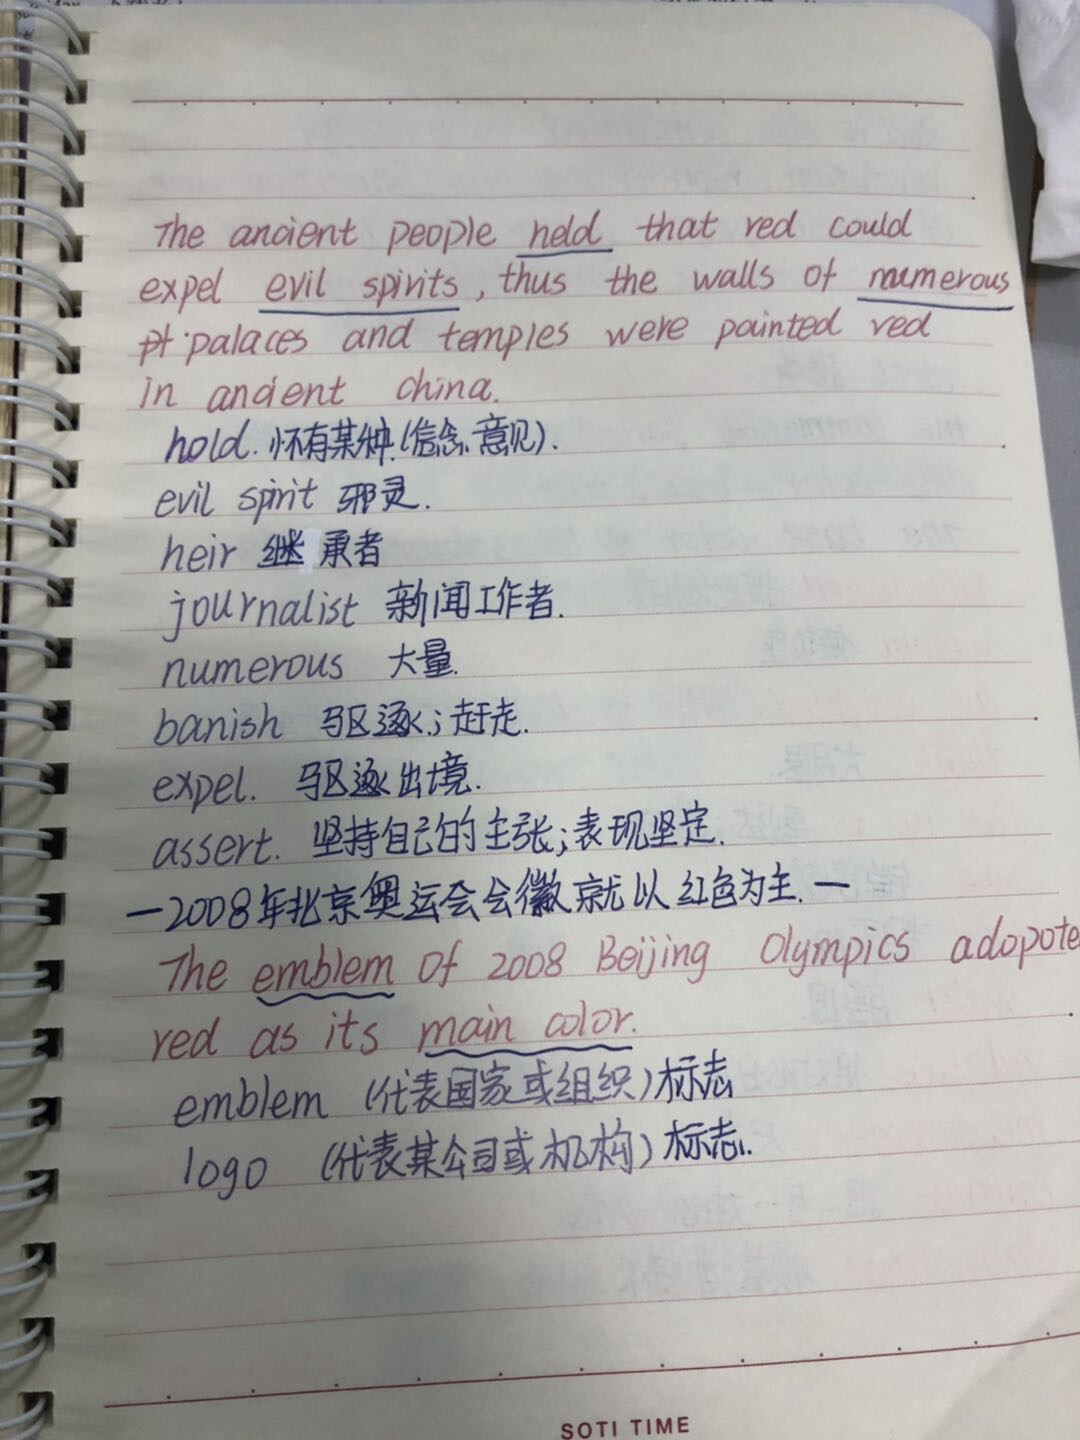 The ancient people held that red could
expel evil spirits, thus the walls of numerous
pt. palaces and temples were painted red
in ancient china.
hold. 怀有某种.(信念、意见).
evil spirit 邪灵.
heir 继承者
journalist 新闻工作者.
numerous 大量.
banish 驱逐;赶走.
expel. 驱逐出境.
assert. 坚持自己的主张;表现坚定.
—2008年北京奥运会会徽就以红色为主.—
The emblem of 2008 Beijing Olympics adopote
red as its main color.
emblem (代表国家或组织)标志
logo (代表某公司或机构)标志.
SOTI TIME